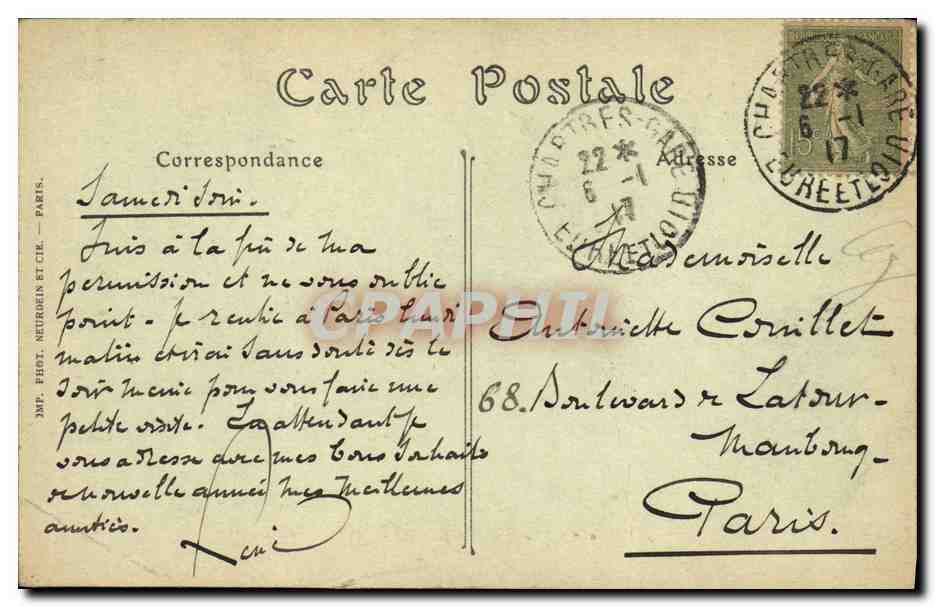 Carte Postale
Correspondance
Adresse
CHARTRES-GARE
22 *
6 -1
17
EURE ET LOIR
CHARTRES-GARE
22 *
6 -1
17
EURE ET LOIR
15c
IMP. PHOT. NEURDEIN ET CIE. — PARIS.
Samedi soir.
Suis à la fin de ma
permission et ne vous oublie
point. Je rentre à Paris lundi
matin et irai sans doute dès le
soir même pour vous faire une
petite visite. En attendant je
vous adresse avec mes bons souhaits
de nouvelle année mes meilleures
amitiés.
René
Mademoiselle
Antoinette Conillet
68. Boulevard de Latour-
Maubourg-
Paris.
CPAPHIL